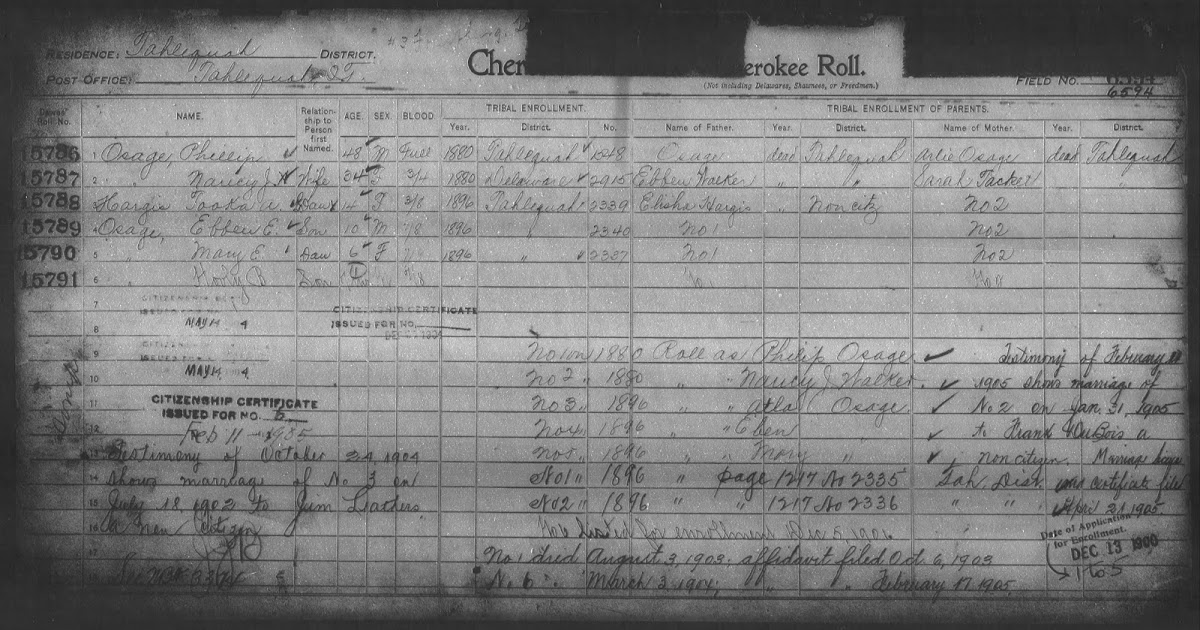 RESIDENCE: Tahlequah DISTRICT.
POST OFFICE: Tahlequah, I.T.
Cher erokee Roll.
(Not including Delawares, Shawnees, or Freedmen.)
FIELD NO. 6594
Dawes' Roll No. NAME. Relationship to Person first Named. AGE. SEX. BLOOD TRIBAL ENROLLMENT. TRIBAL ENROLLMENT OF PARENTS.
Year. District. No. Name of Father. Year. District. Name of Mother. Year. District.
15786 1 Osage, Phillip 48 M Full 1880 Tahlequah 1248 Osage dead Tahlequah Arlie Osage dead Tahlequah
15787 2 " Nancy J. Wife 34 F 3/4 1880 Delaware 2915 Ebben Walker " " Sarah Tacker "
15788 3 Hargis Tooka A Dau 14 F 3/8 1896 Tahlequah 2339 Elisha Hargis " Noncitz No 2
15789 4 Osage, Ebben E. Son 10 M 7/8 1896 " 2340 No 1 No 2
15790 5 " Mary E. Dau 6 F 7/8 1896 " 2337 No 1 No 2
15791 6 " B Son 7/8
7 CITIZENSHIP
ISSUED FOR
MAY 14 4
CITIZENSHIP CERTIFICATE
ISSUED FOR NO.
8
9 No 1 on 1880 Roll as Philip Osage Testimony of February
MAY 14 4
10 No 2 " 1880 " " Nancy J. Walker 1905 shows marriage of
11 CITIZENSHIP CERTIFICATE No 3 " 1896 " " Atla Osage No. 2 on Jan. 31, 1905
ISSUED FOR NO. 6
12 Feb 11 1905 No 4 " 1896 " " Eben " to Frank DuBois a
13 Testimony of October 24 1904 No 5 " 1896 " " Mary " non citizen. Marriage
14 shows marriage of No. 3 on No 1 " 1896 " page 1217 No 2335 Tah. Dist. and certificate filed
15 July 18, 1902 to Jim Lathers. No 2 " 1896 " " 1217 No 2336 " " April 21, 1905.
16 a non citizen No 6 listed for enrollment Dec 5, 1901
Date of Application for Enrollment.
DEC 13 1900
1 to 5
17 No 1 died August 3, 1903; affidavit filed Oct 6, 1903
18 N. 6 " March 3, 1904; " " February 17 1905.